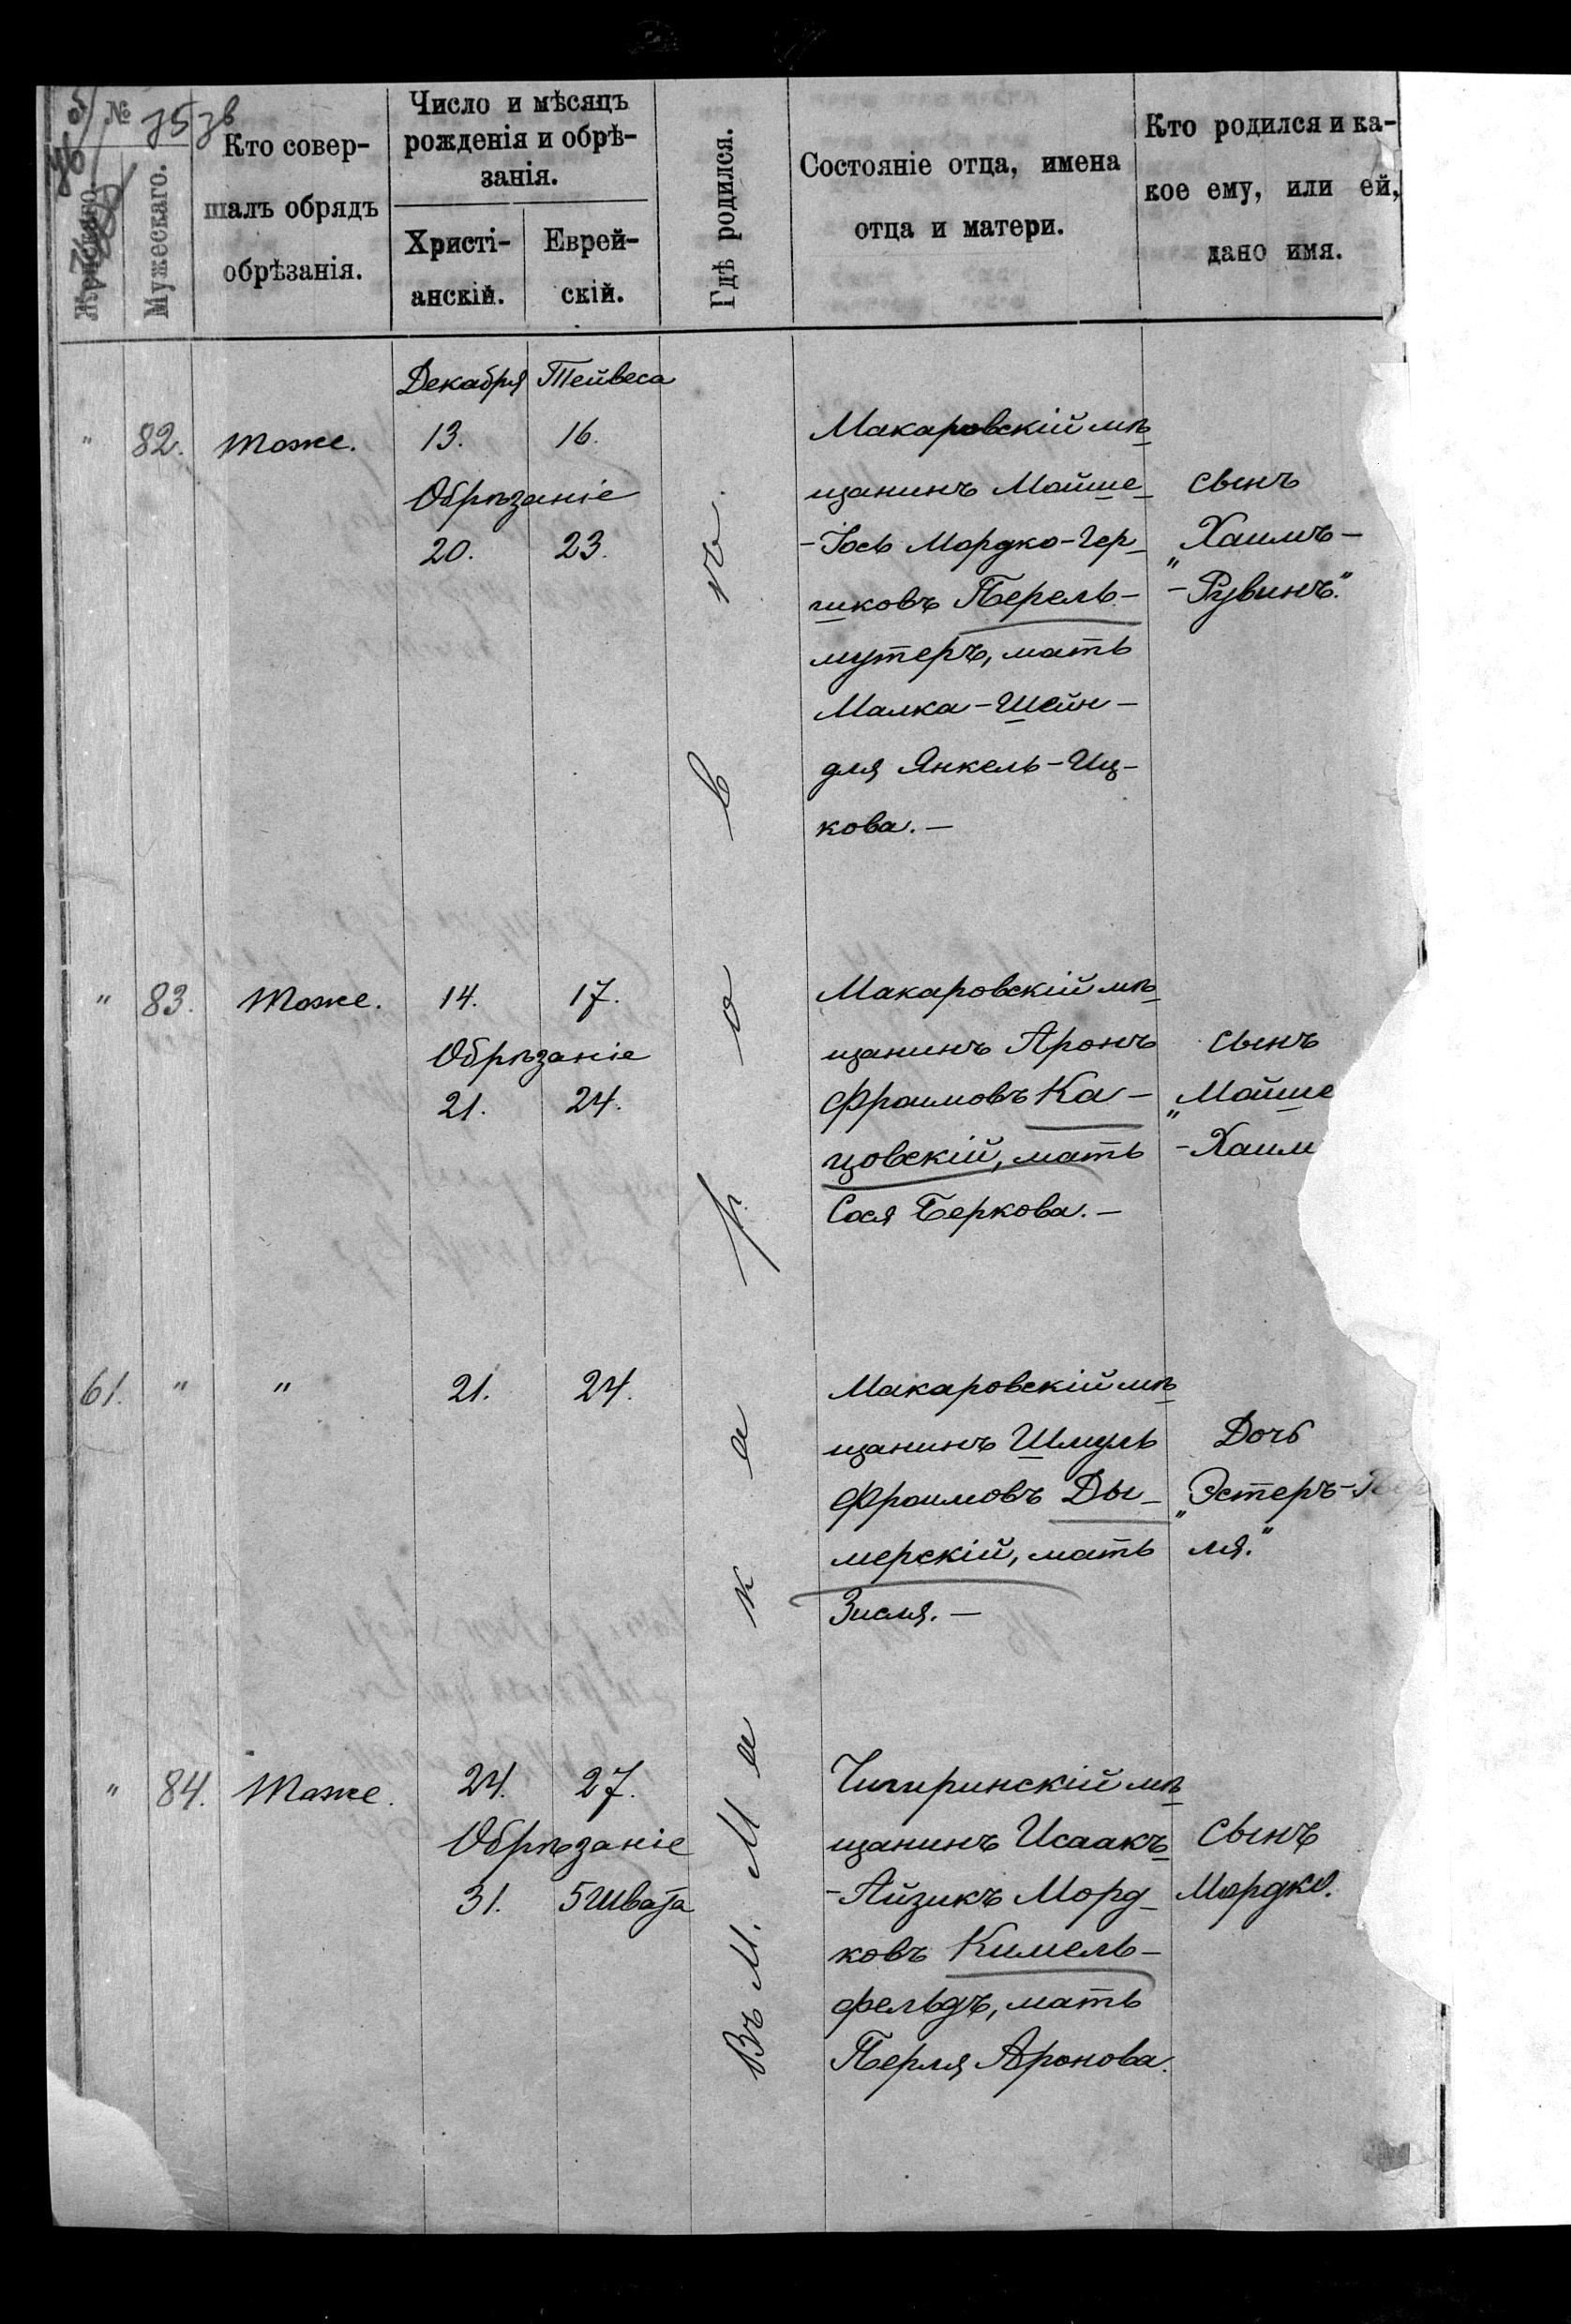 № 75 зв
Женскаго.
Мужескаго.
Кто совер-
шалъ обрядъ
обрѣзанія.
Число и мѣсяцъ
рожденія и обрѣ-
занія.
Христі-
анскій.
Еврей-
скій.
Гдѣ родился.
Состояніе отца, имена
отца и матери.
Кто родился и ка-
кое ему, или ей,
дано имя.
Въ М. Макаровѣ.
Декабря Тейвеса
" 82. Тоже. 13. 16.
Обрѣзаніе
20. 23.
Макаровскій мѣ
щанинъ Мойше-
-Іось Мордко-Гер-
шковъ Перель-
мутеръ, мать
Малка-Шейн-
для Янкель-Иц-
кова.—
сынъ
„Хаимъ-
-Рувинъ."
" 83. Тоже. 14. 17.
Обрѣзаніе
21. 24.
Макаровскій мѣ-
щанинъ Аронъ
Фроимовъ Ка-
цовскій, мать
Сося Беркова.—
сынъ
„Мойше
-Хаим
61. " " 21. 24.
Макаровскій мѣ
щанинъ Шмуль
Фроимовъ Ды-
мерскій, мать
Зисля.—
Дочь
„Эстеръ-Пер
ля."
" 84. Тоже. 24. 27.
Обрѣзаніе
31. 5 Швата
Чигиринскій мѣ
щанинъ Исаакъ-
-Айзикъ Морд-
ковъ Кимель-
фельдъ, мать
Перля Аронова.
Сынъ
Мордко.